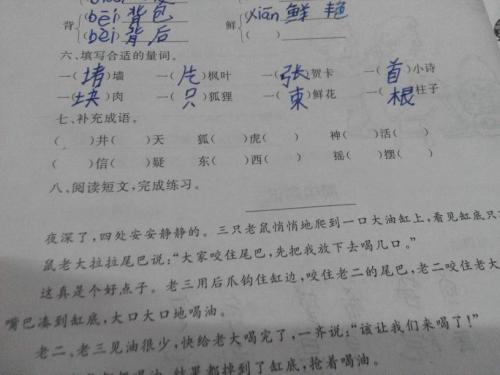 背 (bēi) 背包 鲜 xiān 鲜艳
(bèi) 背后 ( )
六、填写合适的量词。
一(堵)墙 一(片)枫叶 一(张)贺卡 一(首)小诗
一(块)肉 一(只)狐狸 一(束)鲜花 一(根)柱子
七、补充成语。
( )井( )天 狐( )虎( ) 神( )活( )
( )信( )疑 东( )西( ) 摇( )摆( )
八、阅读短文,完成练习。
夜深了,四处安安静静的。三只老鼠悄悄地爬到一口大油缸上,看见缸底只
鼠老大拉拉尾巴说:“大家咬住尾巴,先把我放下去喝几口。”
这真是个好点子。老三用后爪钩住缸边,咬住老二的尾巴,老二咬住老大
嘴巴凑到缸底,大口大口地喝油。
老二、老三见油很少,快给老大喝完了,一齐说:“该让我们来喝了!”
结果都掉到了缸底,抢着喝油。